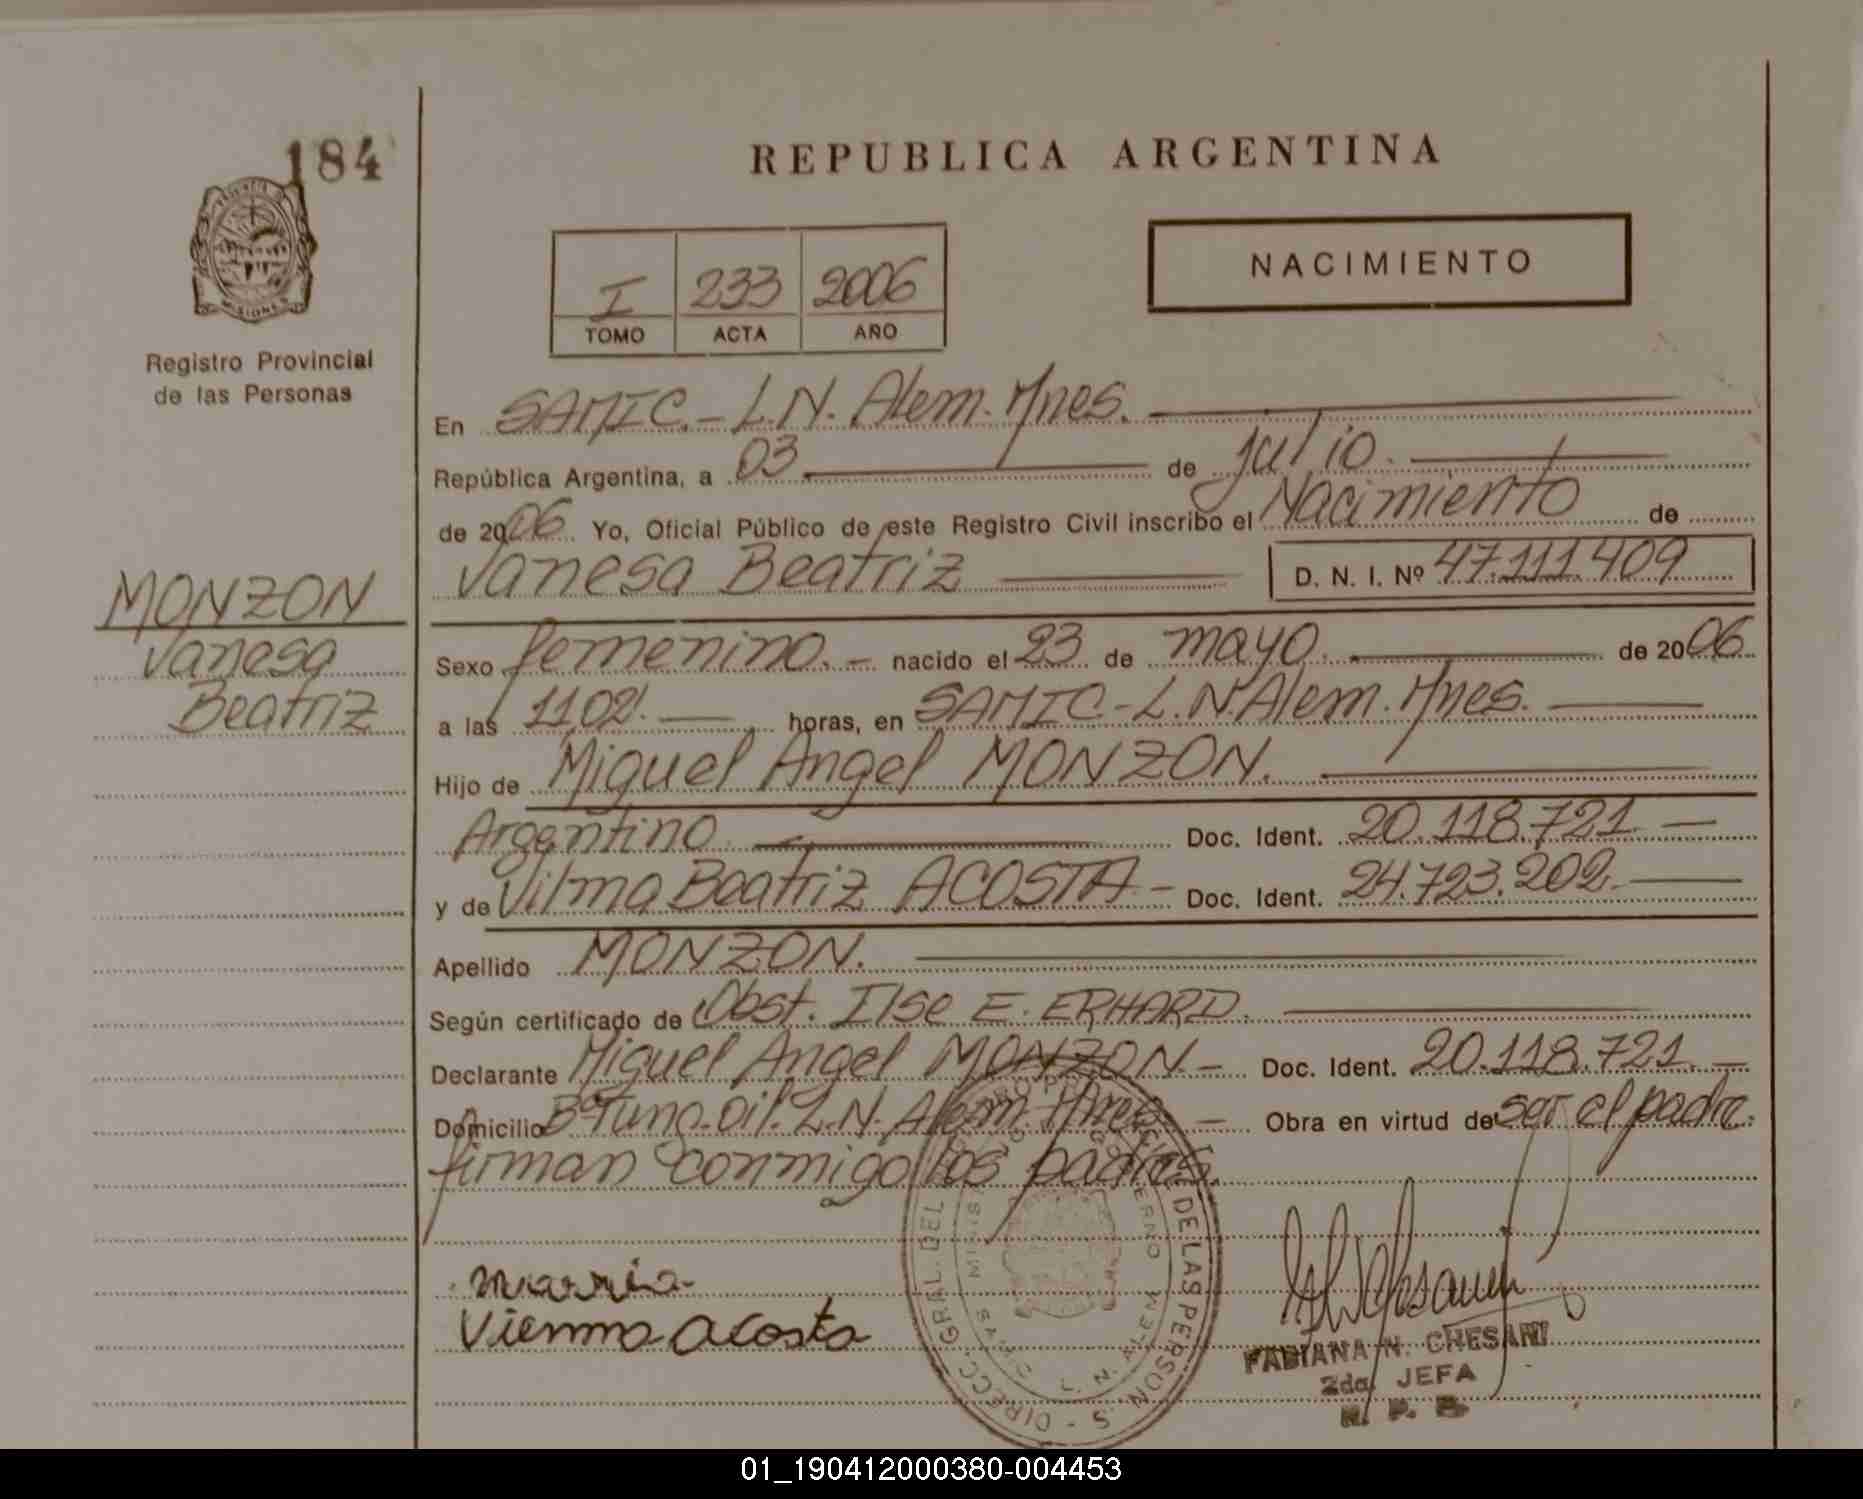 184
REPUBLICA ARGENTINA
NACIMIENTO
I 233 2006
TOMO ACTA AÑO
MISIONES
Registro Provincial
de las Personas
En SAMIC.- L.N. Alem. Mnes.
República Argentina, a 03 de julio.
de 2006 Yo, Oficial Público de este Registro Civil inscribo el Nacimiento de
Vanesa Beatriz D. N. I. Nº 47.111.409
MONZON
Vanesa
Beatriz
Sexo femenino.- nacido el 23 de mayo. de 2006
a las 11,02. horas, en SAMIC-L.N.Alem.Mnes.
Hijo de Miguel Angel MONZON.
Argentino. Doc. Ident. 20.118.721
y de Vilma Beatriz ACOSTA- Doc. Ident. 24.723.202
Apellido MONZON.
Según certificado de Obst. Ilse E. ERHARD.
Declarante Miguel Angel MONZON.- Doc. Ident. 20.118.721.-
Domicilio L.N. Alem. Mnes. - Obra en virtud de ser el padre.
firman conmigo los padres.
Vienma acosta
DIRECC. GRAL. DEL DE LAS PERSONAS
SAMIC L. N. ALEM
FABIANA N. CHESANI
2da. JEFA
R. P. P.
01_190412000380-004453